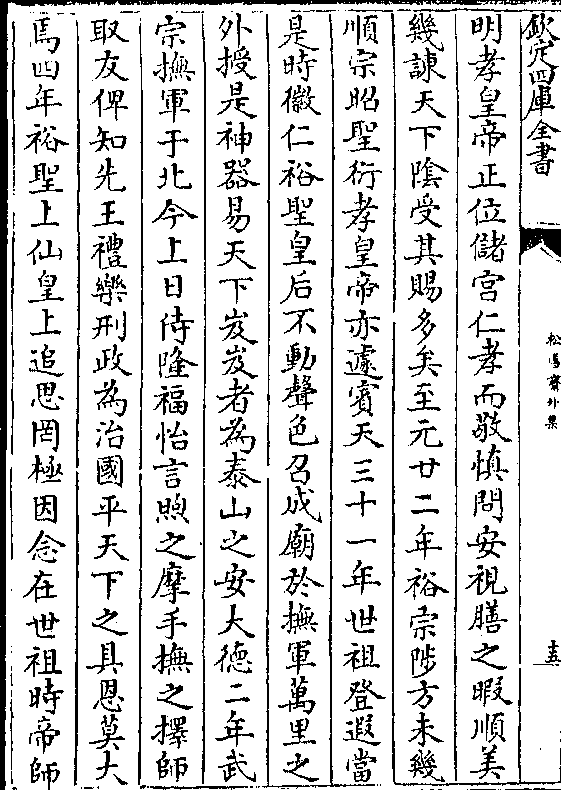 欽定四庫全書
松鄉齋外集
十五
明孝皇帝正位儲宮仁孝而敬慎問安視膳之暇順美
幾諫天下陰受其賜多矣至元廿二年裕宗陟方未幾
順宗昭聖衍孝皇帝亦遽賓天三十一年世祖登遐當
是時徽仁裕聖皇后不動聲色召成廟於撫軍萬里之
外授是神器易天下岌岌者為泰山之安大德二年武
宗撫軍于北今上日侍隆福怡言煦之摩手撫之擇師
取友俾知先王禮樂刑政為治國平天下之具恩莫大
焉四年裕聖上仙皇上追思罔極因念在世祖時帝師